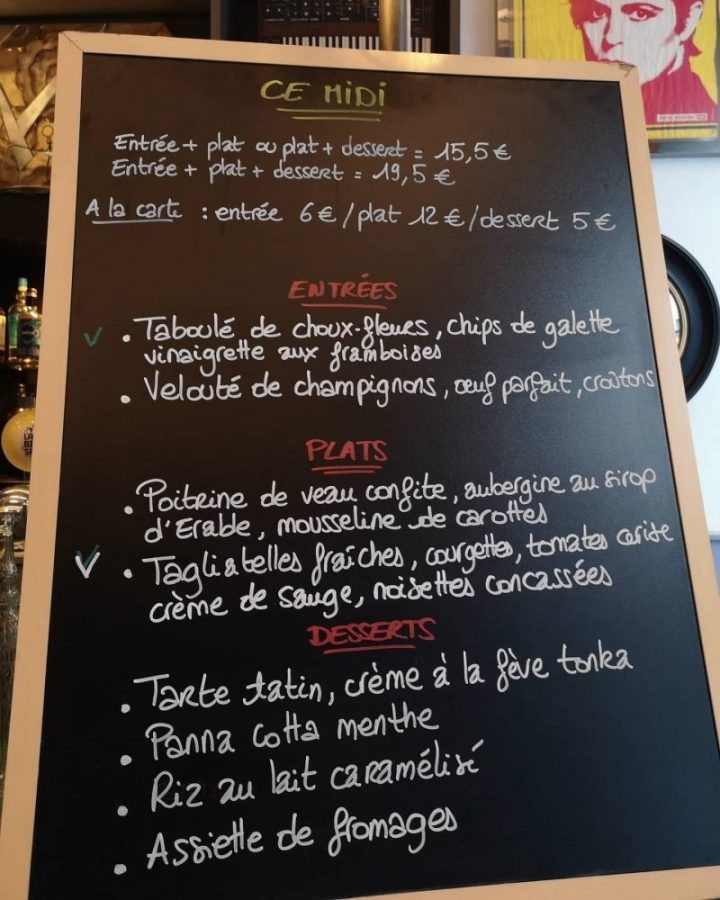 CE MiDi
Entrée + plat ou plat + dessert = 15,5 €
Entrée + plat + dessert = 19,5 €
A la carte : entrée 6 € / plat 12 € / dessert 5 €
ENTRÉES
✓ • Taboulé de choux-fleurs, chips de galette
vinaigrette aux framboises
• Velouté de champignons, œuf parfait, croûtons
PLATS
• Poitrine de veau confite, aubergine au sirop
d'Erable, mousseline de carottes
✓ • Tagliatelles fraîches, courgettes, tomates cerise
crème de sauge, noisettes concassées
DESSERTS
• Tarte tatin, crème à la fève tonka
• Panna Cotta menthe
• Riz au lait caramélisé
• Assiette de fromages